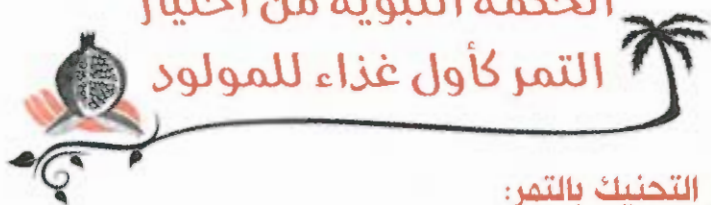 الحكمة النبوية من اختيار
التمر كأول غذاء للمولود
التحنيك بالتمر: